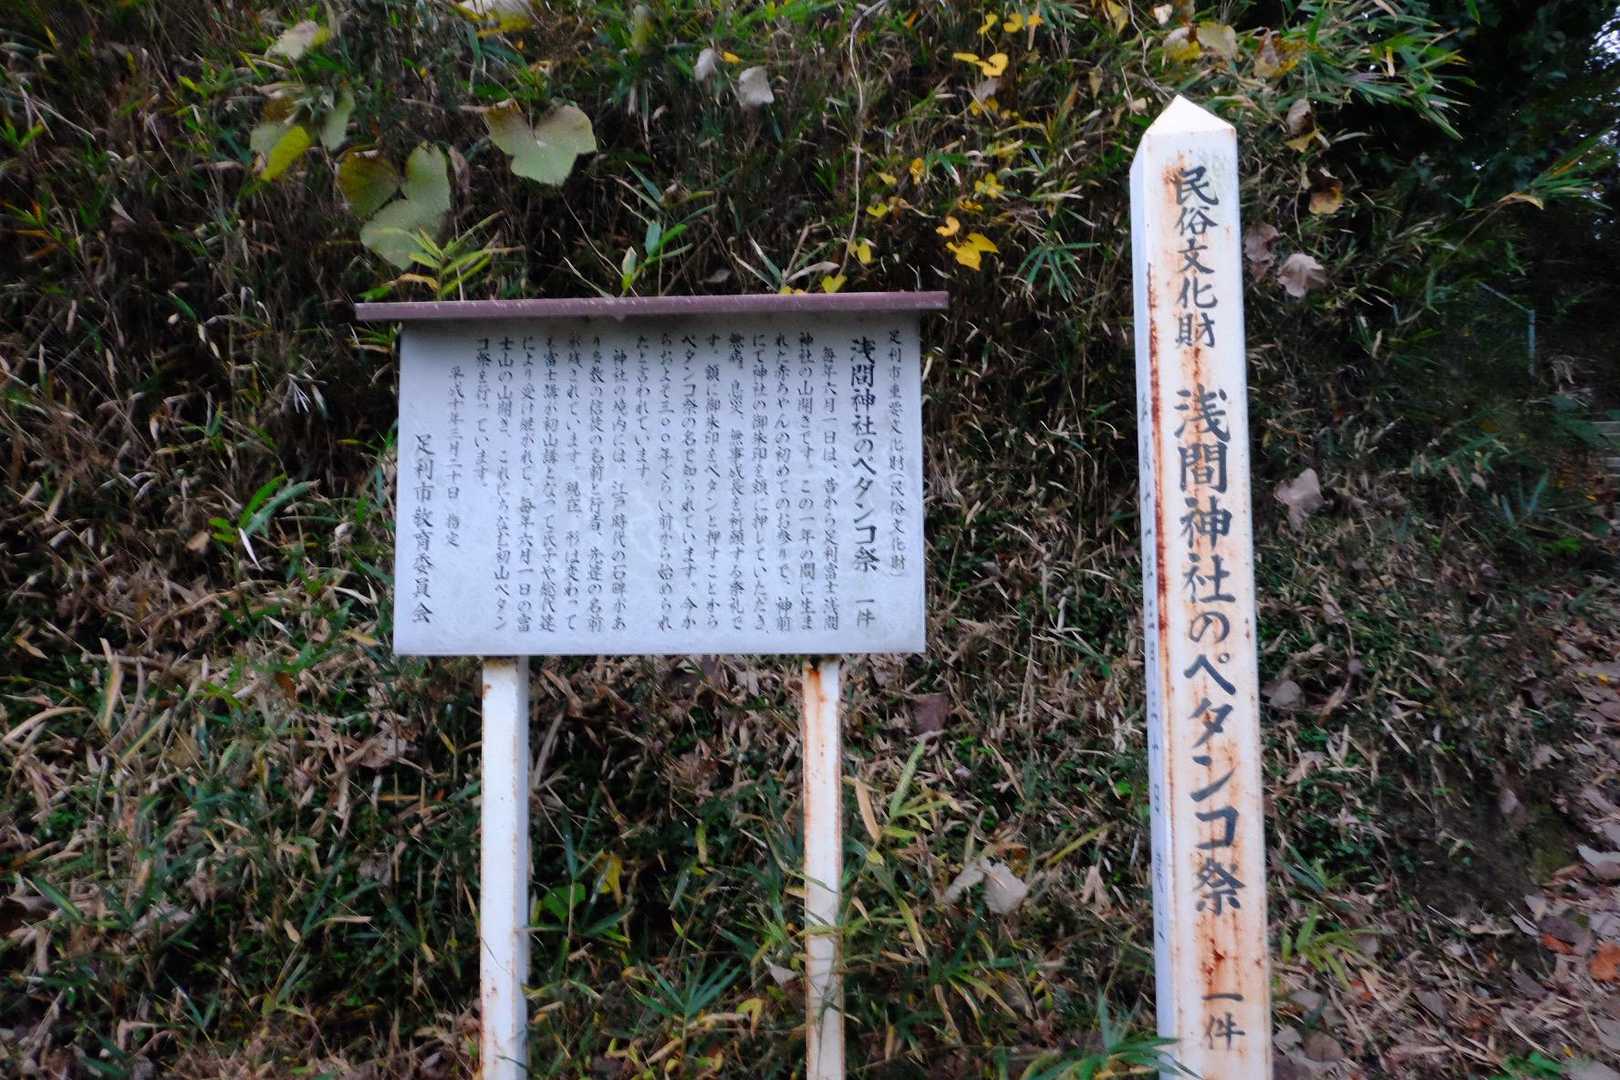 民俗文化財 浅間神社のペタンコ祭 一件
足利市重要文化財(民俗文化財)
浅間神社のペタンコ祭 一件
毎年六月一日は、昔から足利富士浅間
神社の山開きです。この一年の間に生ま
れた赤ちゃんの初めてのお参りで、神前
にて神社の御朱印を額に押していただき、
無病、息災、無事成長を祈願する祭礼で
す。額に御朱印をペタンと押すことから
ペタンコ祭の名で知られています。今か
らおよそ三〇〇年ぐらい前から始められ
たと言われています。
神社の境内には、江戸時代の石碑があ
り多数の信徒の名前と行者、先達の名前
が残されています。現在、形は変わって
も富士講が初山講となって氏子や総代達
により受け継がれて、毎年六月一日の富
士山の山開き、これにちなむ初山ペタン
コ祭を行っています。
平成十年三月二十日 指定
足利市教育委員会